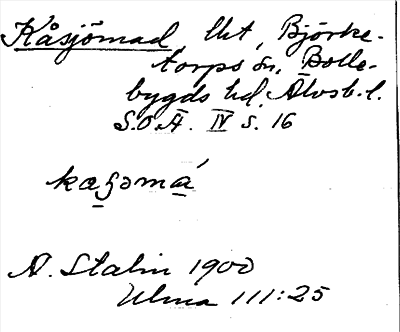 Kåsjömad, lht, Björke-
torps sn, Bolle-
bygds hd, Älvsb. l.
S.O.Ä. IV s. 16
A. Stalin 1900
Ulma 111:25